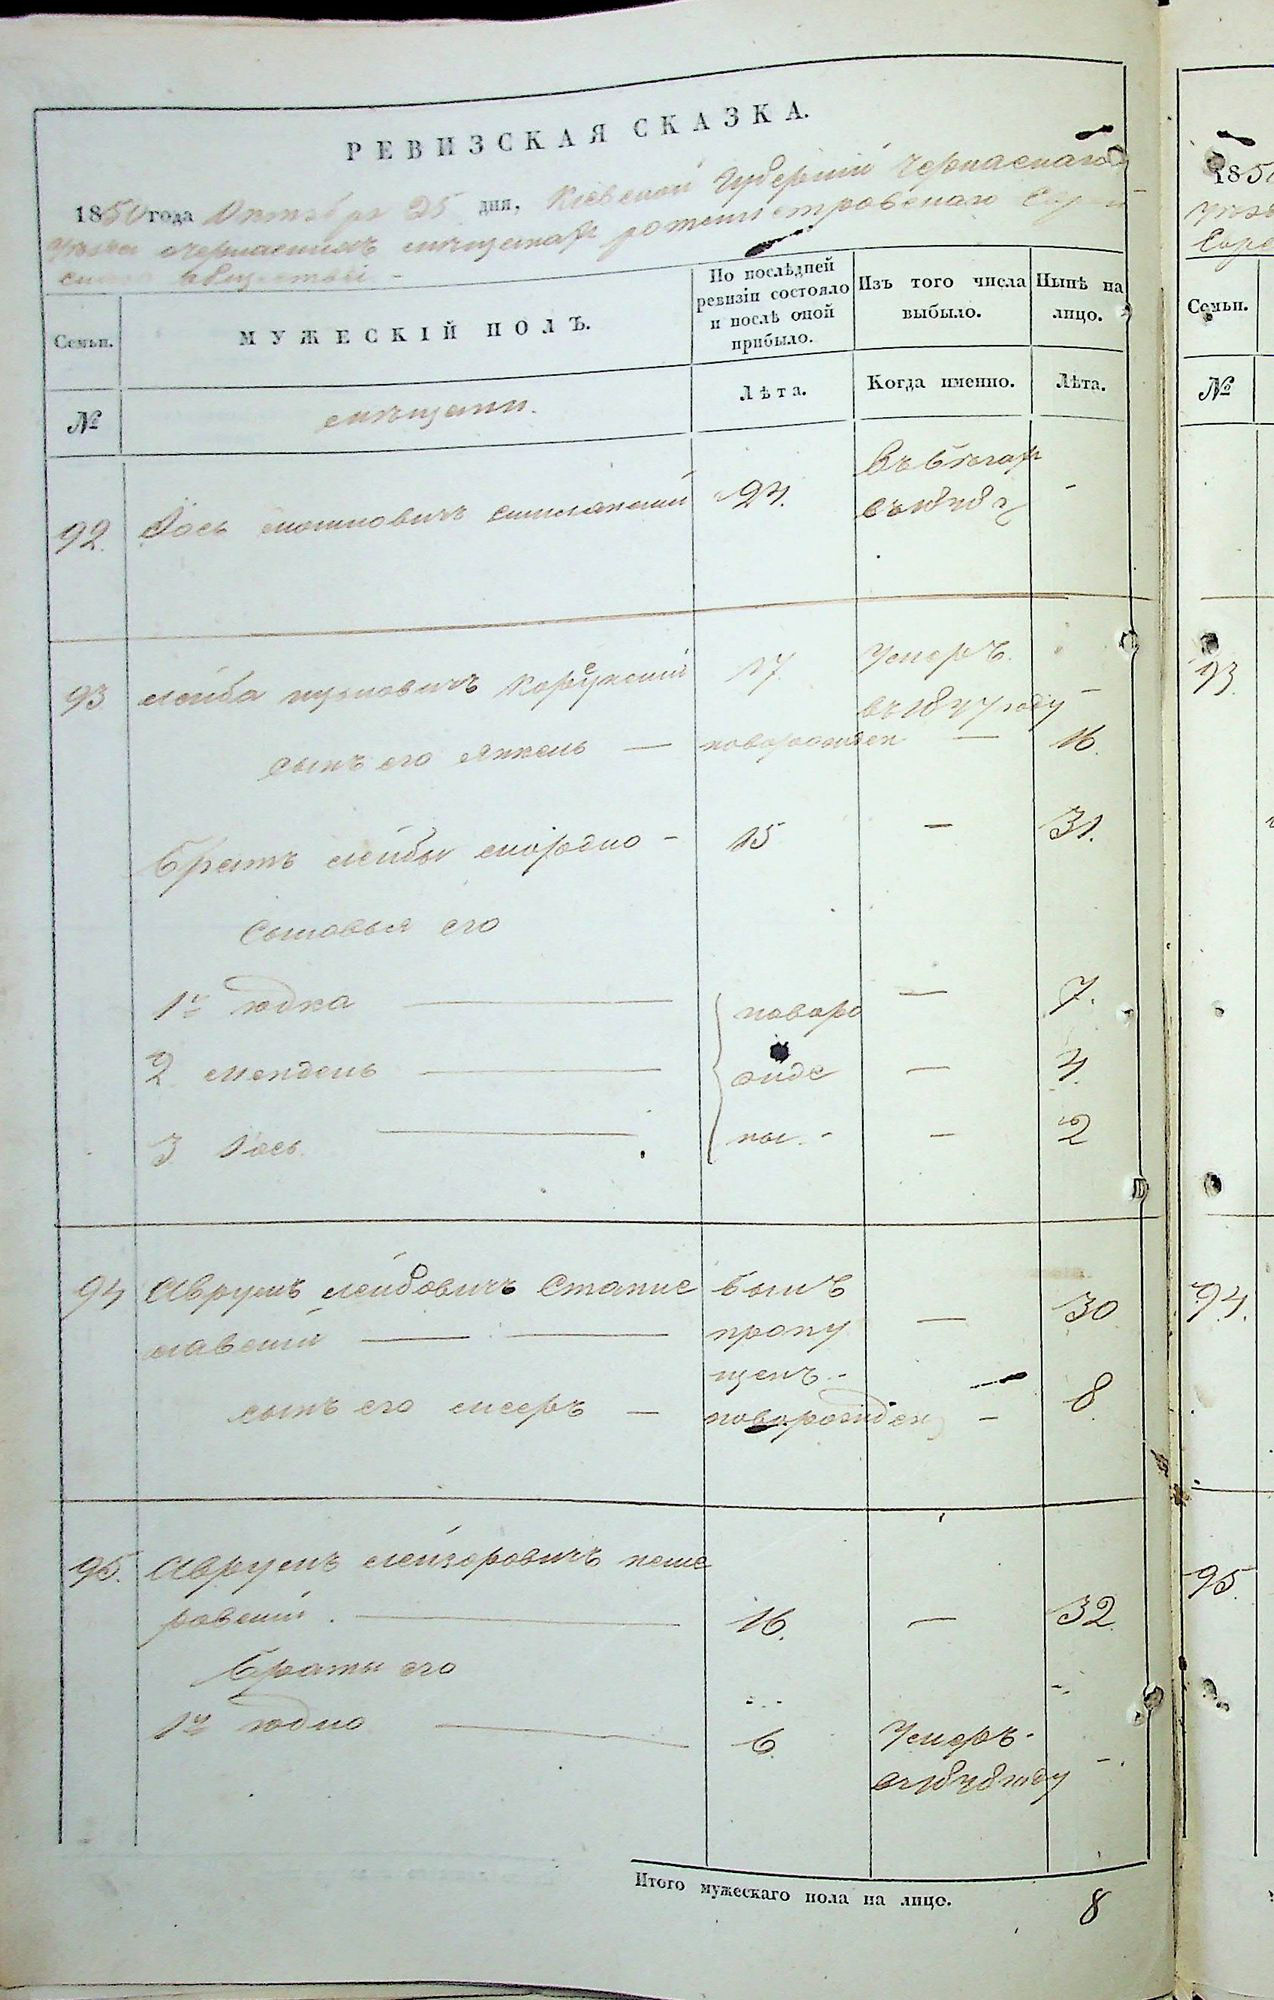 РЕВИЗСКАЯ СКАЗКА.
1850 года Октября 25 дня, Киевской Губерніи Черкаскаго
уезда черкаскихъ мещанах ротмистровскаго Еврей
скаго общества -
Семьи.
МУЖЕСКІЙ ПОЛЪ.
По послѣдней
ревизіи состояло
и послѣ оной
прибыло.
Изъ того числа
выбыло.
Нынѣ на
лицо.
№
мещани.
Лѣта.
Когда именно.
Лѣта.
92. Іось мошковичъ 24. въ бегах -
93 лейба ицковичъ Корсунский 17 умеръ
въ 1847 году -
сынъ его Янкель — новорожден — 16.
братъ лейбы шмордко - 15 — 31.
сыновья его
1й юдка — новоро — 7.
2 мендель — жде — 4.
3 Іось — ны. - — 2
94 Аврумъ лейбовичъ Станис былъ
лавский — пропу — 30
щенъ. -
сынъ его — новорожден — 8
95. Аврумъ лейзоровичъ
16. — 32
братья его
1й юдко — 6 умеръ -
году -
Итого мужескаго пола на лицо. 8
1850
Семьи.
№
93
94.
95.